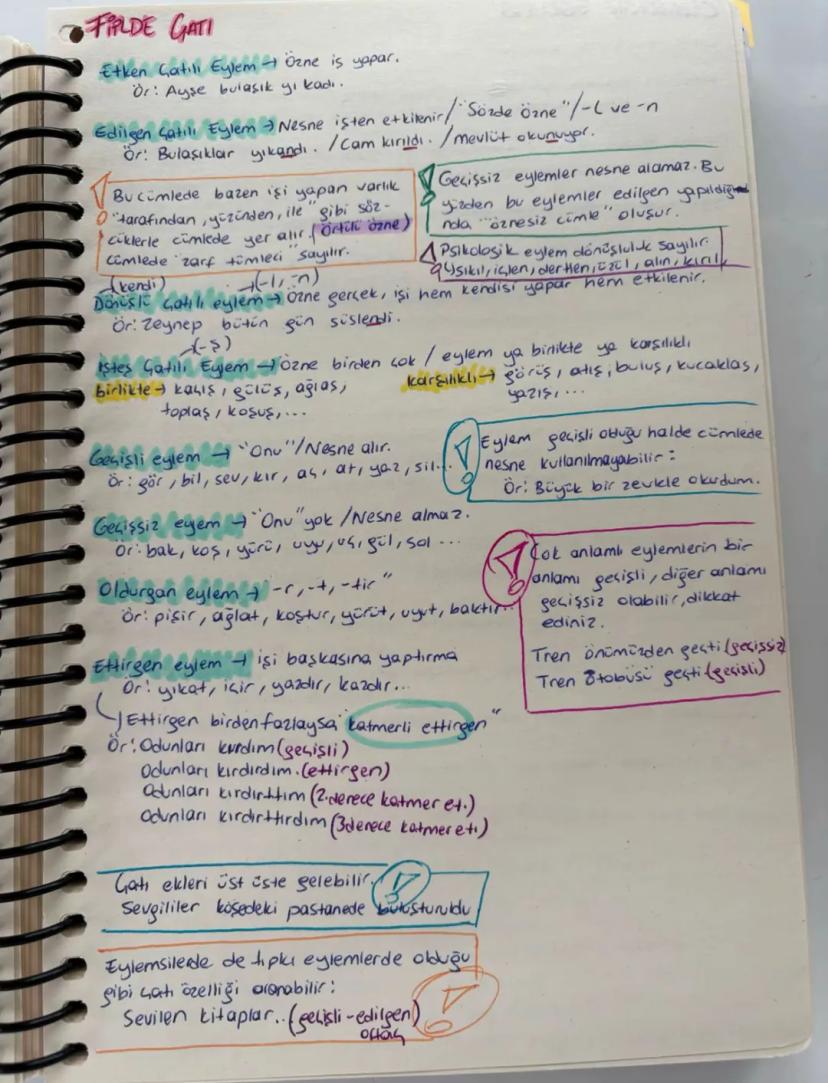 FİİLDE ÇATI
Etken Çatılı Eylem → Özne iş yapar.
Ör: Ayşe bulaşık yıkadı.
Edilgen Çatılı Eylem → Nesne işten etkilenir / "Sözde özne" / -L ve -n
Ör: Bulaşıklar yıkandı. / Cam kırıldı. / mevlüt okunuyor.
Bu cümlede bazen işi yapan varlık
"tarafından, yüzünden, ile" gibi söz-
cüklerle cümlede yer alır. (örtülü özne)
Cümlede "zarf tümleci" sayılır.
Geçişsiz eylemler nesne alamaz. Bu
yüzden bu eylemler edilgen yapıldığı
nda "öznesiz cümle" oluşur.
Psikolojik eylem dönüşlülük sayılır.
sıkıl, içlen, dertlen, üzül, alın, kırıl
(kendi) (-l, -n)
Dönüşlü Çatılı eylem → Özne gerçek, işi hem kendisi yapar hem etkilenir.
Ör: Zeynep bütün gün süslendi.
(-ş)
İşteş Çatılı Eylem → Özne birden çok / eylem ya birlikte ya karşılıklı
birlikte → kaçış, gülüş, ağlaş,
toplaş, koşuş, ...
karşılıklı → görüş, atış, buluş, kucaklaş,
yazış, ...
Geçişli eylem → "Onu" / Nesne alır.
Ör: gör, bil, sev, kır, aç, at, yaz, sil...
Eylem geçişli olduğu halde cümlede
nesne kullanılmayabilir:
Ör: Büyük bir zevkle okudum.
Geçişsiz eyem → "Onu" yok / Nesne almaz.
Ör: bak, koş, yürü, uyu, uç, gül, sol ...
Oldurgan eylem → -r, -t, -tir"
Ör: pişir, ağlat, koştur, yürüt, uyut, baktır...
Çok anlamlı eylemlerin bir
anlamı geçişli, diğer anlamı
geçişsiz olabilir, dikkat
ediniz.
Tren önümüzden geçti (geçişsiz)
Tren otobüsü geçti (geçişli)
Ettirgen eylem → işi başkasına yaptırma
Ör: yıkat, içir, yazdır, kazdır...
Ettirgen birden fazlaysa "katmerli ettirgen"
Ör: Odunları kırdım (geçişli)
Odunları kırdırdım. (ettirgen)
Odunları kırdırttım (2. derece katmer et.)
Odunları kırdırttırdım (3 derece katmer et.)
Çatı ekleri üst üste gelebilir.
Sevgililer köşedeki pastanede buluşturuldu
Eylemsilerde de tıpkı eylemlerde olduğu
gibi çatı özelliği aranabilir:
Sevilen kitaplar.. (geçişli-edilgen)
ortaç